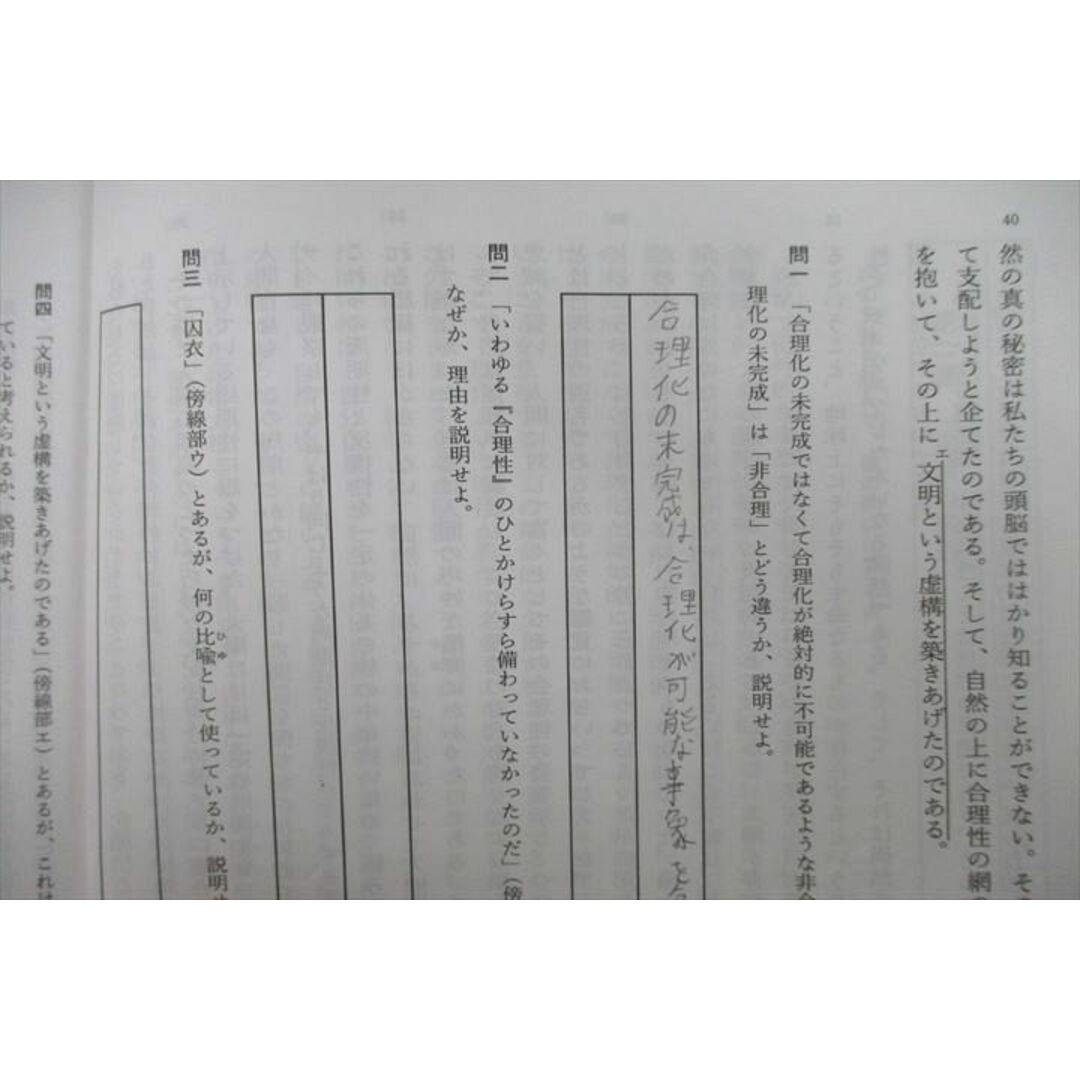 40
然の真の秘密は私たちの頭脳でははかり知ることができない。そ
て支配しようと企てたのである。そして、自然の上に合理性の網
を抱いて、その上に文明という虚構を築きあげたのである。
エ
問一 「合理化の未完成ではなくて合理化が絶対的に不可能であるような非合
理化の未完成」は「非合理」とどう違うか、説明せよ。
合理化の未完成は、合理化が可能な事象を合
問二 「いわゆる『合理性』のひとかけらすら備わっていなかったのだ」（傍
なぜか、理由を説明せよ。
問三 「囚衣」（傍線部ウ）とあるが、何の比喩として使っているか、説明せ
ひゆ
問四 「文明という虚構を築きあげたのである」（傍線部エ）とあるが、これは
ていると考えられるか、説明せよ。